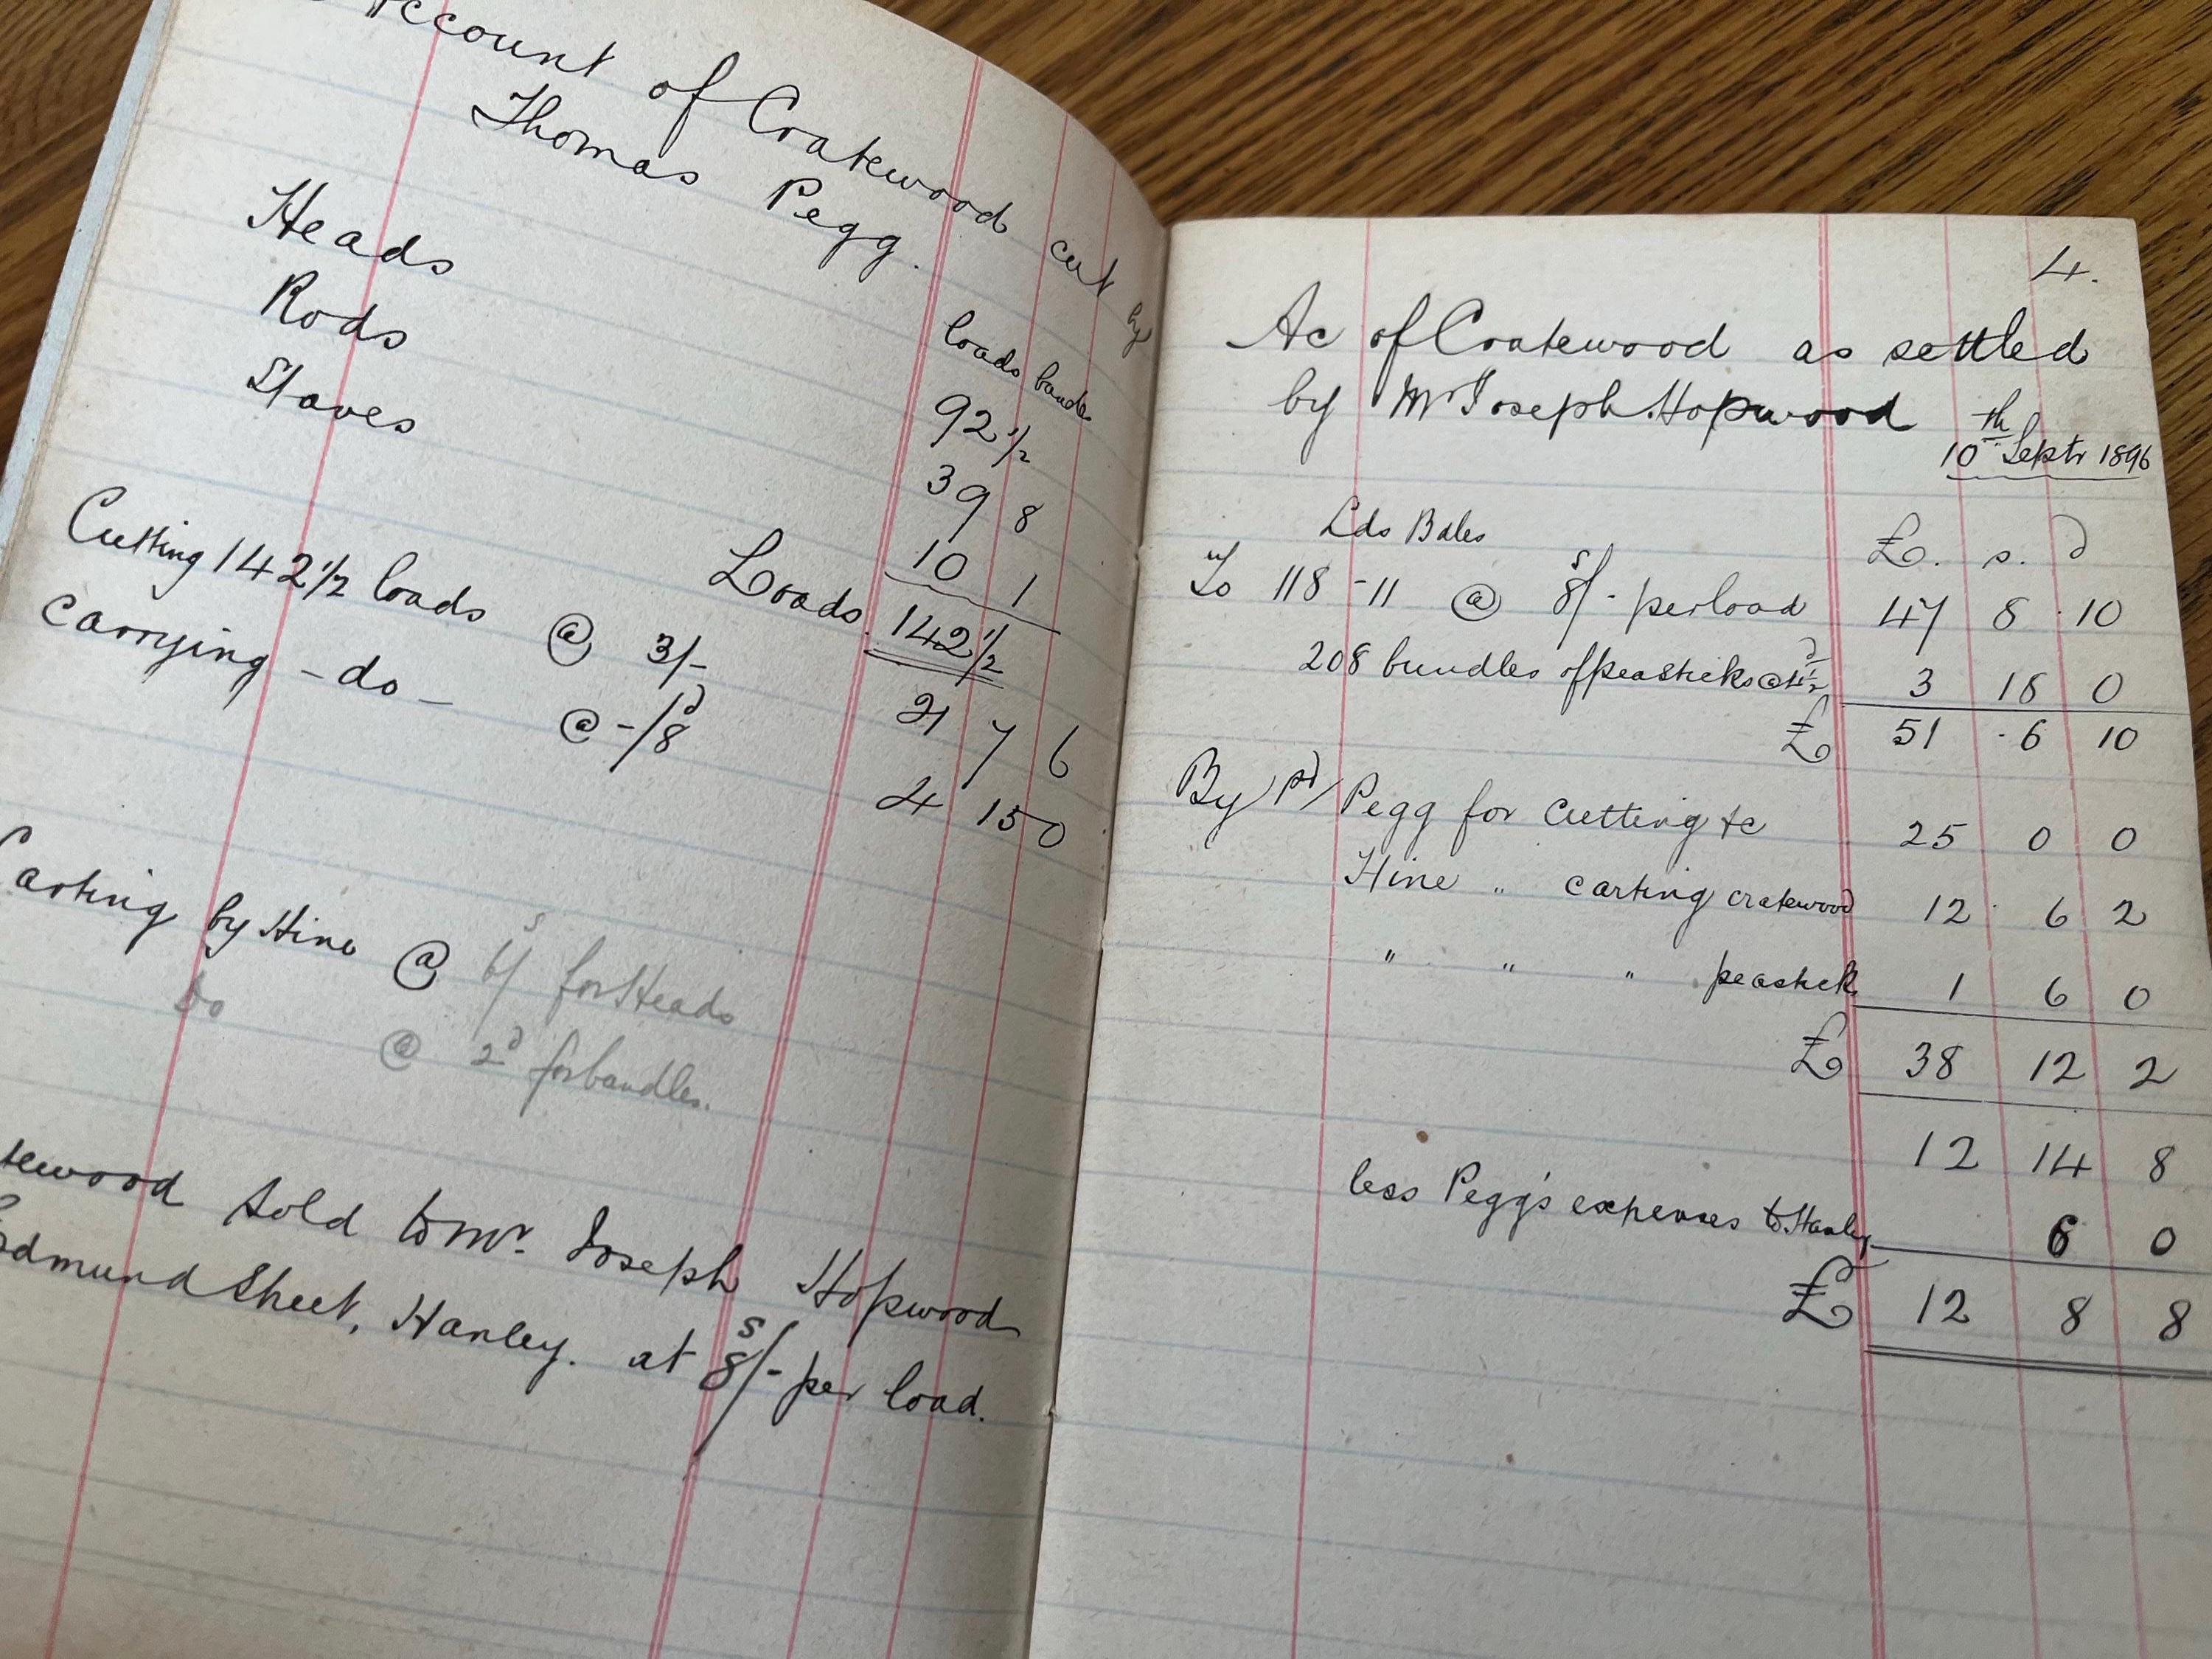 Account of Cratewood cut by
Thomas Pegg.
loads bands
Heads 92 1/2
Rods 39 8
Staves 10 1
Loads. 142 1/2
Cutting 142 1/2 loads @ 3/- 21 7 6
Carrying - do - @ -/8d 4 15 0
Carting by Hine @ 6s/ for Heads
Do @ 2d for bandles.
tewood sold to Mr. Joseph Hopwood
Edmund Street, Hanley. at 8s/- per load.
4.
Ac of Cratewood as settled
by Mr Joseph Hopwood
10th Septr 1896
Lds Bdles £. s. d
To 118 - 11 @ 8s/- per load 47 8 10
208 bundles of peasticks @ 4 1/2d 3 18 0
£ 51 6 10
By pd Pegg for Cutting &c 25 0 0
Hine " carting cratewood 12 6 2
" " " peastick 1 6 0
£ 38 12 2
12 14 8
less Pegg's expenses to Hanley 6 0
£ 12 8 8